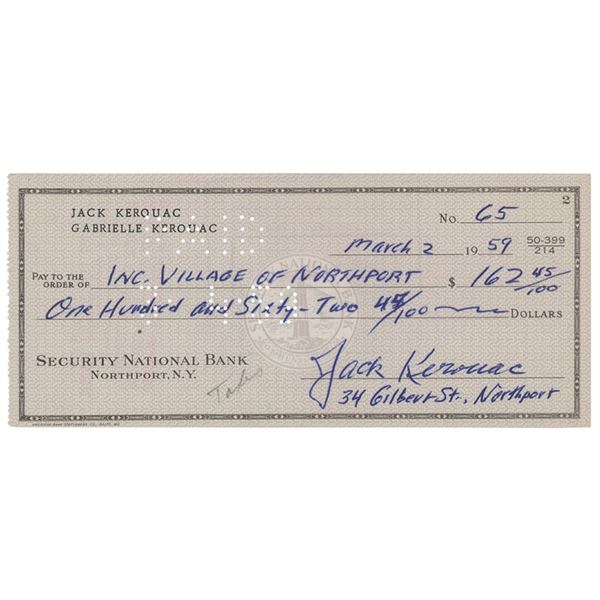 2
JACK KEROUAC
GABRIELLE KEROUAC
No. 65
March 2 19 59 50-399/214
PAY TO THE ORDER OF Inc. Village of Northport $ 162 45/100
One Hundred and Sixty-Two 45/100 DOLLARS
SECURITY NATIONAL BANK
NORTHPORT, N.Y.
Jack Kerouac
34 Gilbert St., Northport